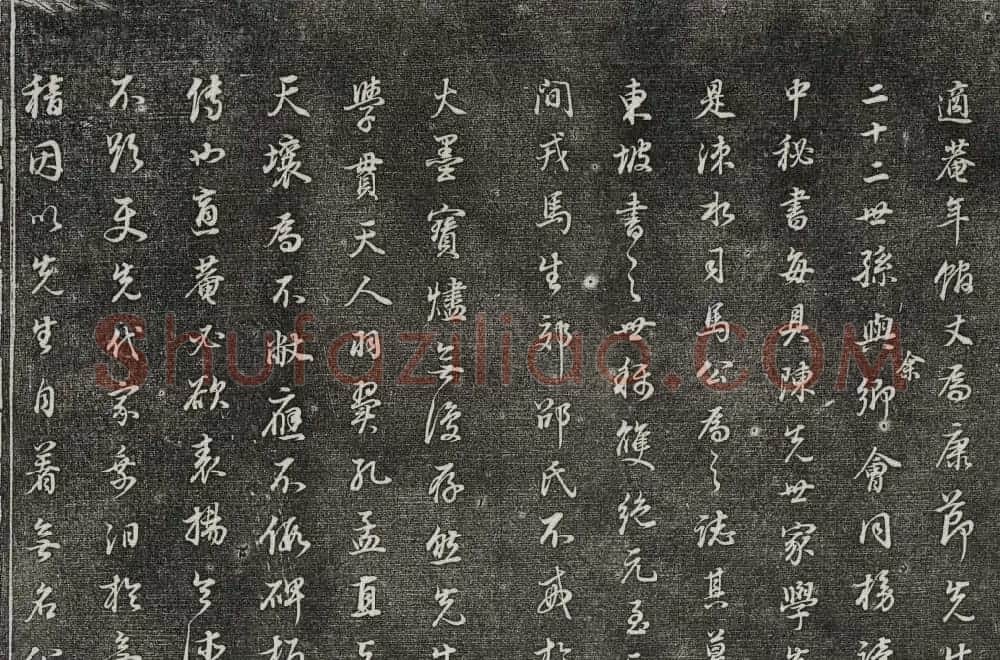 適菴年館丈為康節先生
二十二世孫與余鄉會同榜讀
中秘書每具陳先世家學
是涑水司馬公為之誌其墓
東坡書之世稱雙絕元至
間戎馬生郊邵氏不戒於
火墨寶燼無復存然先生
學貫天人羽翼孔孟直與
天壤為不敝應不假碑板
傳也適菴必欲表揚令德
不貽先代家乘汨於
稽因以先生自著無名公
Shufaziliao.com